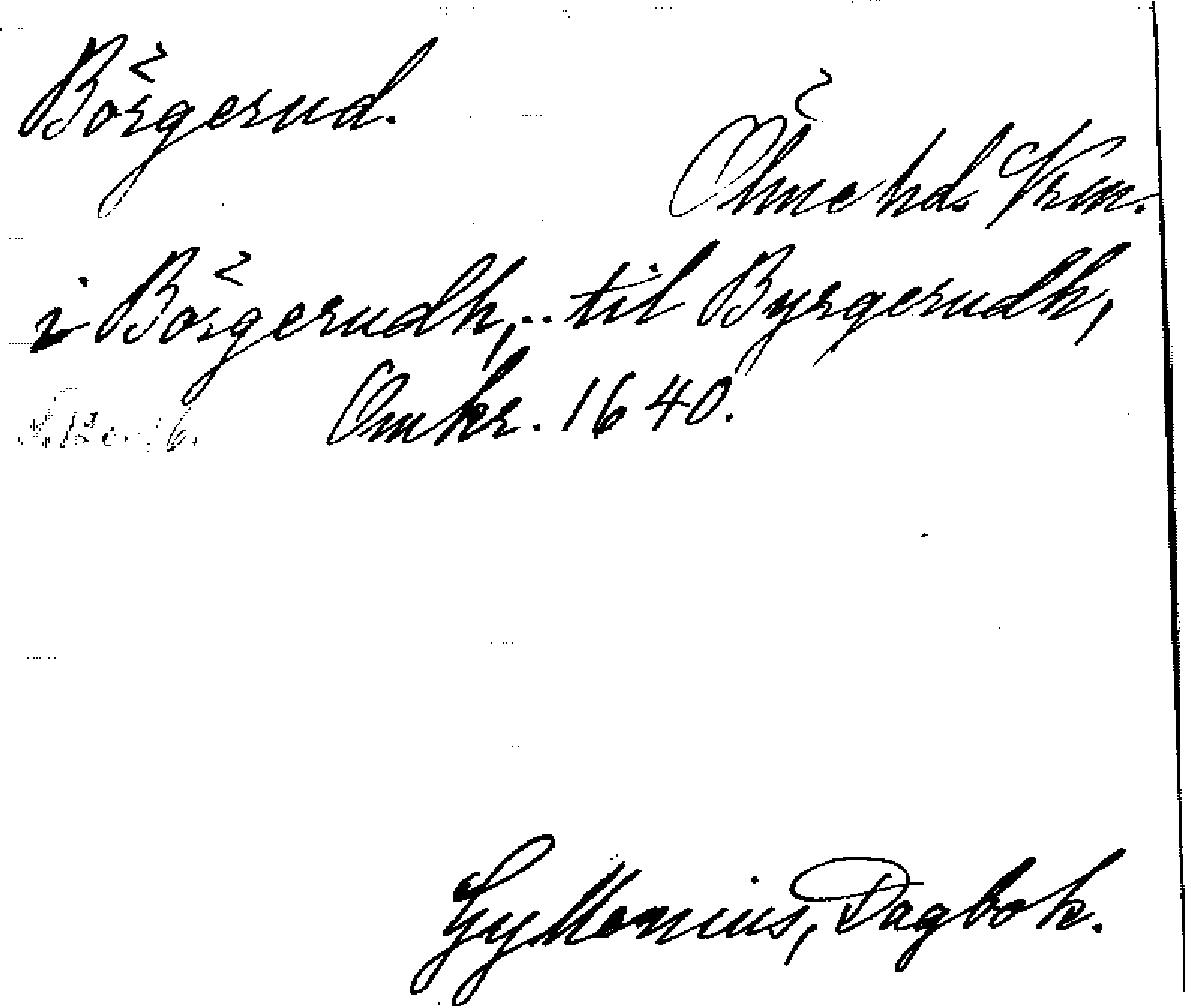 Börgerud.
Ölme hd. Vrm.
i Börgerudh,.. til Byrgerudh,
Omkr. 1640.
Gyllenius, Dagbok.